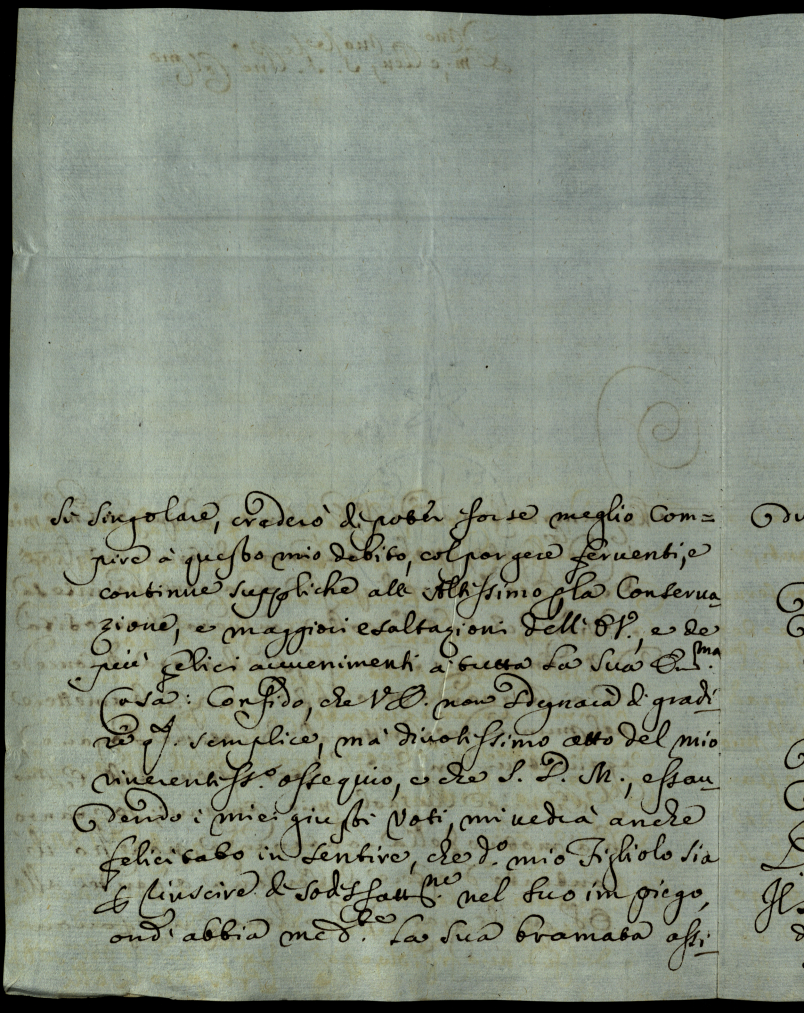 si singolare, crederò di poter forse meglio Com=
pire à questo mio debito, col porgere ferventi, e
continue suppliche all Altissimo p la Conserva
zione, e maggiori esaltazioni dell' E V., e de
più felici avvenimenti à tutta la sua
Casa: Confido, che V E. non sdegnarà di gradi
re semplice, mà divotissimo atto del mio
riverentiss.º ossequio, e che S. D. M., essau
dendo i miei giusti Voti, mi vedrà anche
felicitato in sentire, che d.º mio Figliolo sia
p riuscire di sodisfatt.ne nel suo impiego,
ond' abbia la sua bramata assi